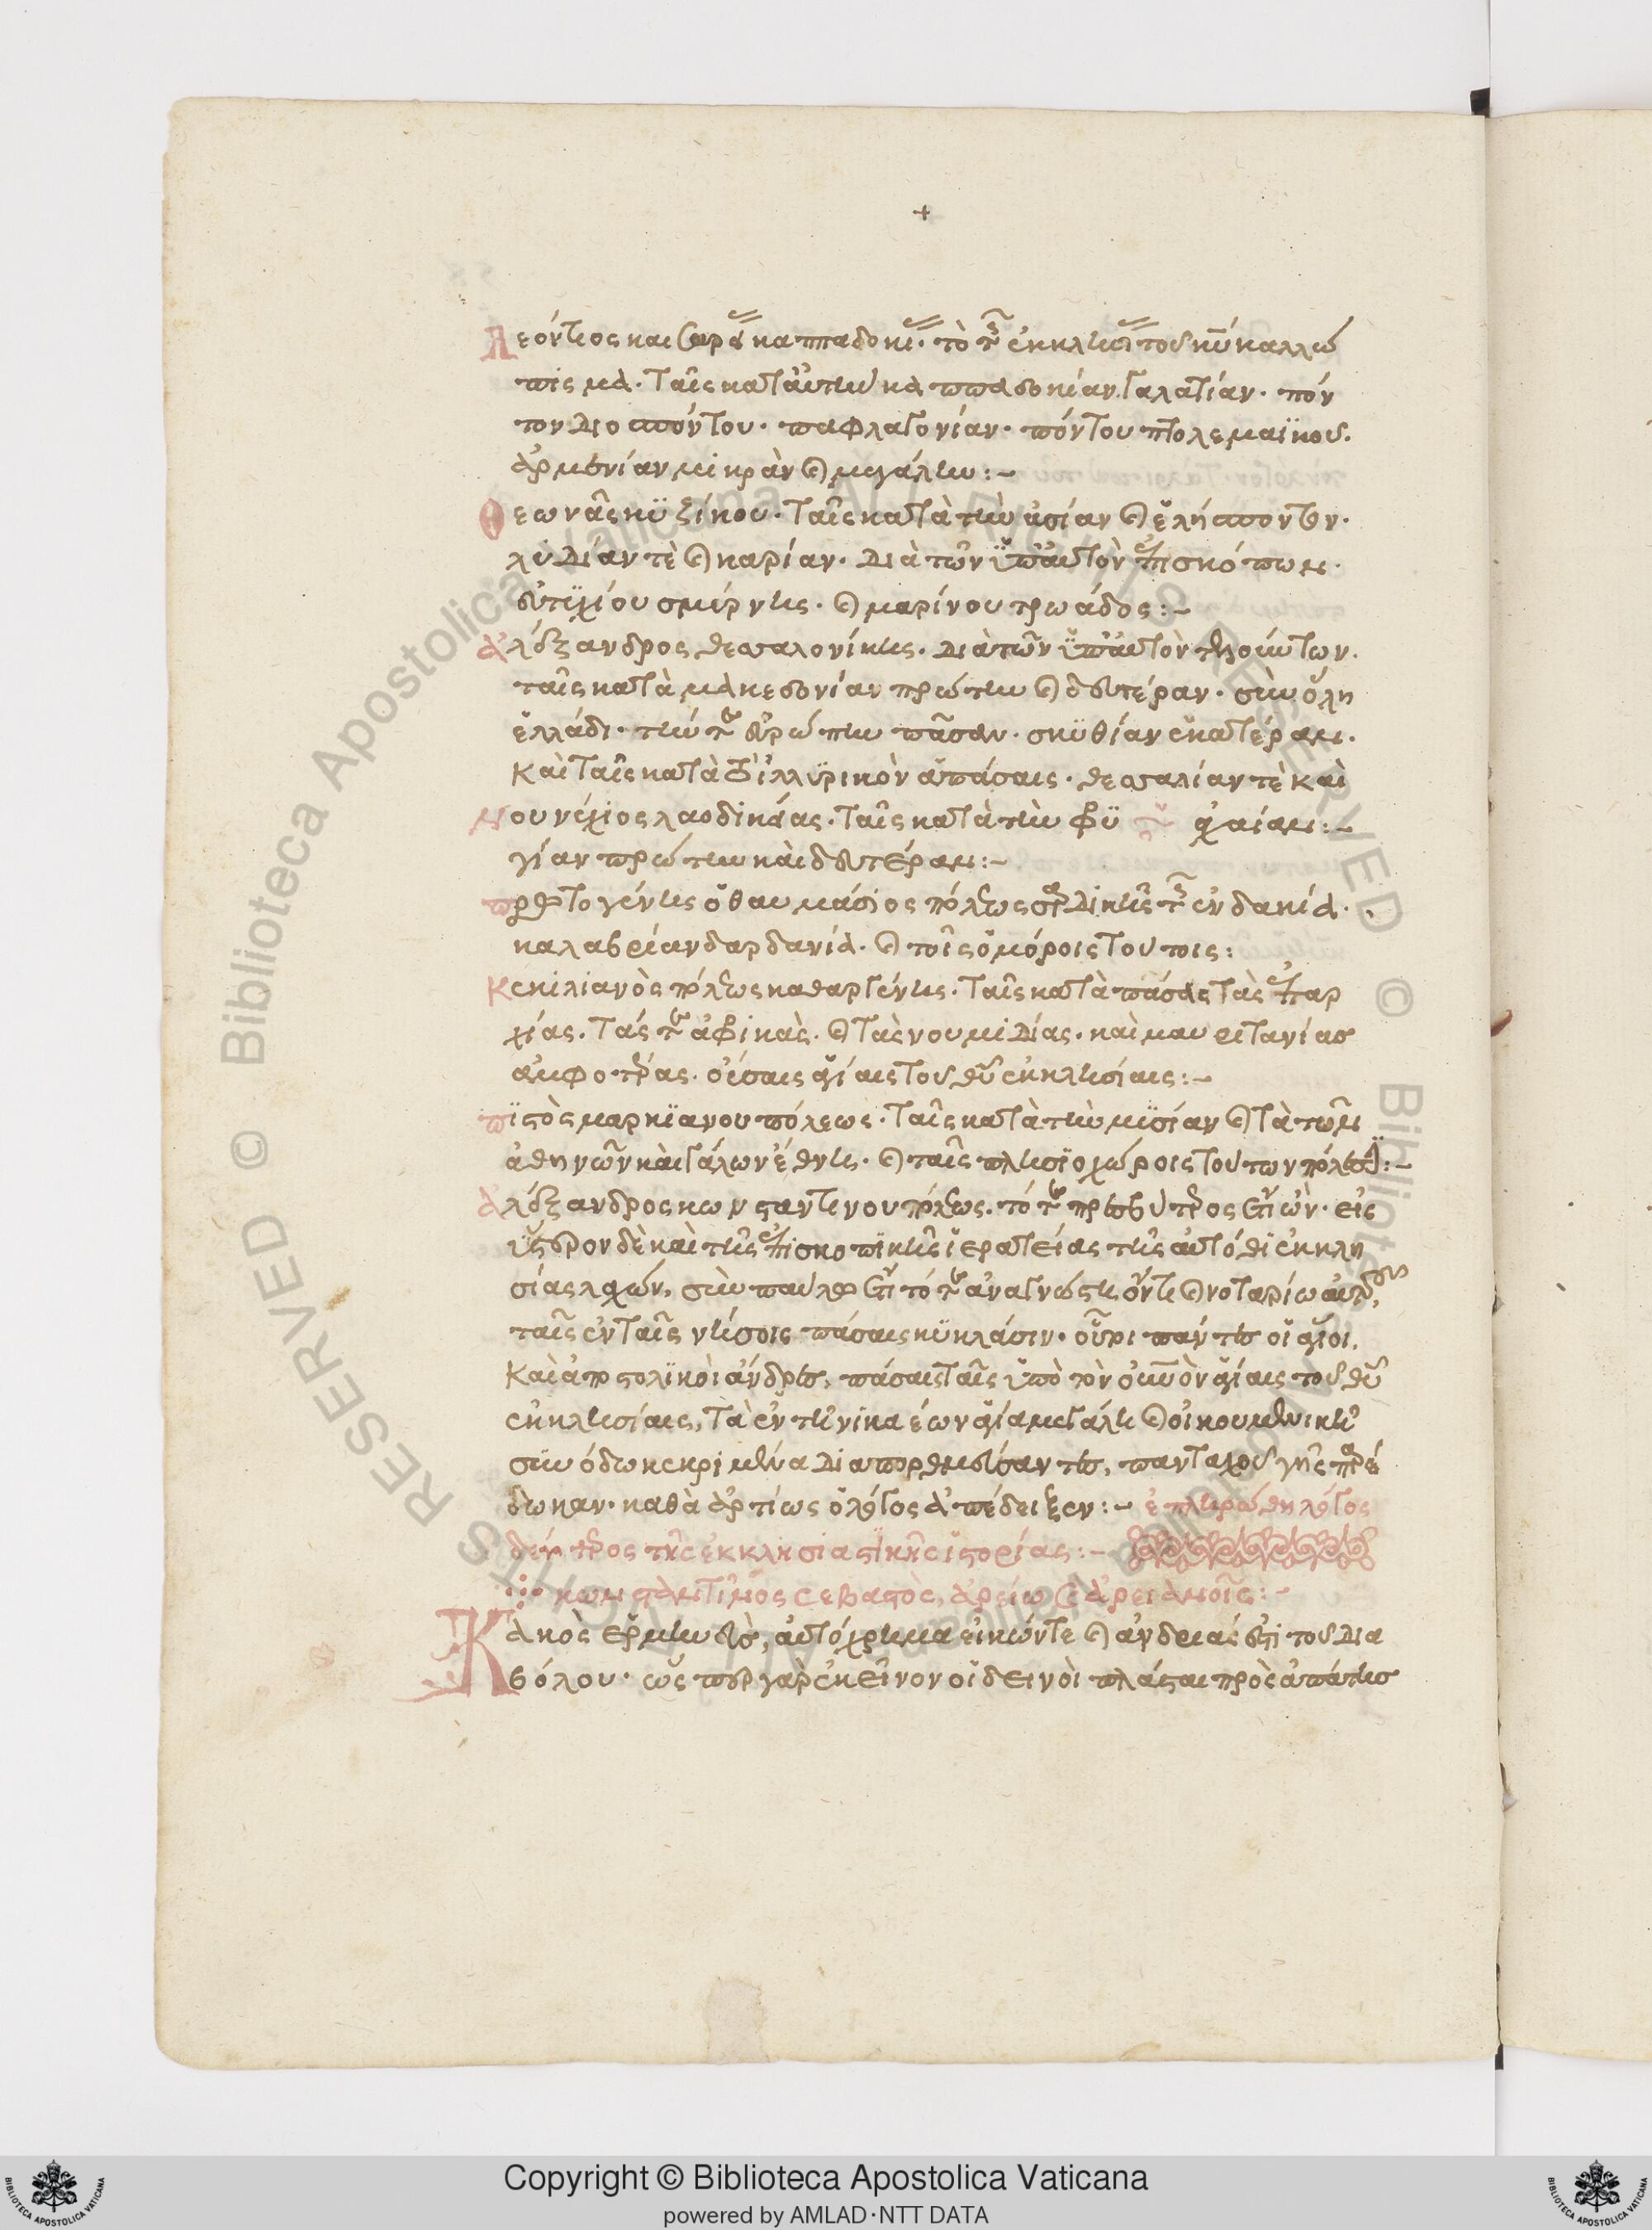 +
Λεόντιος καισαρείας καππαδοκίας· τὸ τῆς ἐκκλησίας τοῦ κυρίου καλλώ
πισμα· ταῖς κατ' αὐτὴν καππαδοκίαν. γαλατίαν· πόν
τον διοσπόντου· παφλαγονίαν· πόντου πτολεμαϊκοῦ.
ἀρμενίαν μικρὰν καὶ μεγάλην:-
Θεωνᾶς κυζίκου· ταῖς κατὰ τὴν ἀσίαν καὶ ἑλήσποντον·
λυδίαν τὲ καὶ καρίαν· διὰ τῶν ὑπ' αὐτὸν ἐπισκόπων·
εὐτυχίου σμύρνης· καὶ μαρίνου τρωάδος:-
ἀλέξανδρος θεσσαλονίκης· διὰ τῶν ὑπ' αὐτὸν τελούντων.
ταῖς κατὰ μακεδονίαν πρώτην καὶ δευτέραν· σὺν ὅλη
ἑλλάδι· τήν τε εὐρώπην πᾶσαν· σκυθίαν ἑκατέραν·
καὶ ταῖς κατὰ τὸ ἰλλυρικὸν ἁπάσαις· θεσσαλίαν τὲ καὶ
ἀχαίαν:-
Νουνέχιος λαοδικείας· ταῖς κατὰ τὴν φρυ
γίαν πρώτην καὶ δευτέραν:-
πρωτογένης ὁ θαυμάσιος πόλεως σαρδικῆς τῆς ἐν δακία·
καλαβρίαν δαρδανία· καὶ τοῖς ὁμόροις τούτοις:
Κεκιλιανὸς πόλεως καθαργένης· ταῖς κατὰ πάσας τὰς ἐπαρ
χίας· τάς τε ἀφρικὰς· καὶ τὰς νουμιδίας· καὶ μαυριτανίας
ἀμφοτέρας· οὔσαις ἁγίαις τοῦ θεοῦ ἐκκλησίαις:-
πιστὸς μαρκιανουπόλεως· ταῖς κατὰ τὴν μυσίαν καὶ τὰ τῶν
ἀθηνῶν καὶ γάλων ἔθνης· καὶ ταῖς πλησιοχώροις τούτων πόλεσιν:-
ἀλέξανδρος κωνσταντινουπόλεως. τό τε πρεσβύτερος ἔτι ὢν· εἰς
ὕστερον δὲ καὶ τῆς ἐπισκοπικῆς ἱερατείας τῆς αὐτόθι ἐκκλη
σίας λαχών, σὺν παύλω ἔτι τό τε ἀναγνώστη ὄντι καὶ νοταρίω αὐτοῦ,
ταῖς ἐν ταῖς νήσοις πάσαις κυκλάσιν· οὗτοι πάντες οἱ ἅγιοι.
καὶ ἀποστολικοὶ ἄνδρες, πάσαις ταῖς ὑπὸ τὸν οὐρανὸν ἁγίαις τοῦ θεοῦ
ἐκκλησίαις, τὰ ἐν τῆ νικαέων ἁγία μεγάλη καὶ οἰκουμενικῆ
συνόδω κεκριμένα διαπορθμεύσαντες, πανταχοῦ γῆς παρέ
δωκαν· καθὰ ἀρτίως ὁ λόγος ἀπέδειξεν:- ἐπληρώθη λόγος
δεύτερος τῆς ἐκκλησιαστικῆς ἱστορίας:-
κωνσταντῖνος σεβαστὸς, ἀρείω καὶ ἀρειανοῖς:-
Κακὸς ἑρμηνεὺς, αὐτόχρημα εἰκών τε καὶ ἀνδριάς ἐστι τοῦ δια
βόλου· ὥσπερ γὰρ ἐκεῖνον οἱ δεινοὶ πλάσται πρὸς ἀπάτης
Copyright © Biblioteca Apostolica Vaticana
powered by AMLAD·NTT DATA